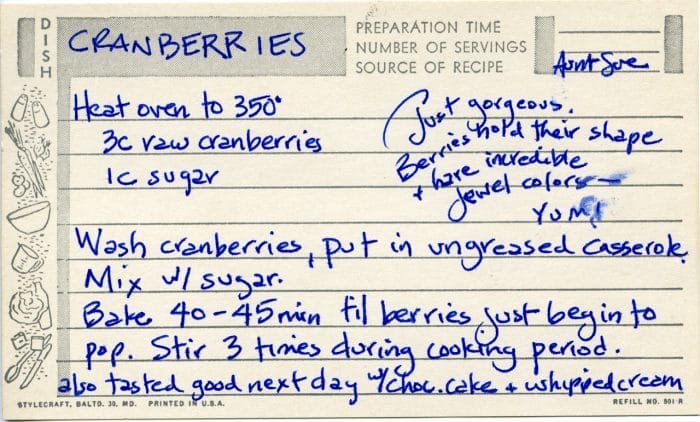 DISH
CRANBERRIES
PREPARATION TIME
NUMBER OF SERVINGS
SOURCE OF RECIPE
Aunt Sue
Heat oven to 350°
3c raw cranberries
1c sugar
Just gorgeous.
Berries hold their shape
+ have incredible
Jewel colors—
YUM!
Wash cranberries, put in ungreased casserole.
Mix w/ sugar.
Bake 40-45 min til berries just begin to
pop. Stir 3 times during cooking period.
also tasted good next day w/choc. cake + whipped cream
STYLECRAFT, BALTO. 30, MD. PRINTED IN U.S.A.
REFILL NO. 801 R